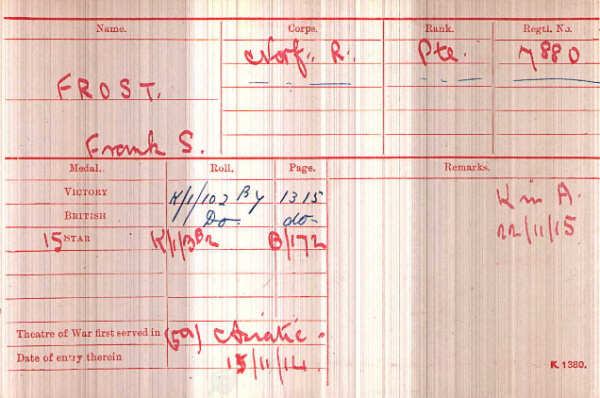 Name. Corps. Rank. Regtl. No.
Norf. R. Pte. 7880
FROST.
Frank S.
Medal. Roll. Page. Remarks.
VICTORY K/1/102 By 1315 K in A.
BRITISH Do. do- 22/11/15
15 STAR K/1/3B2 B/172
Theatre of War first served in (5a) Asiatic.
Date of entry therein 15/11/14.
K 1380.